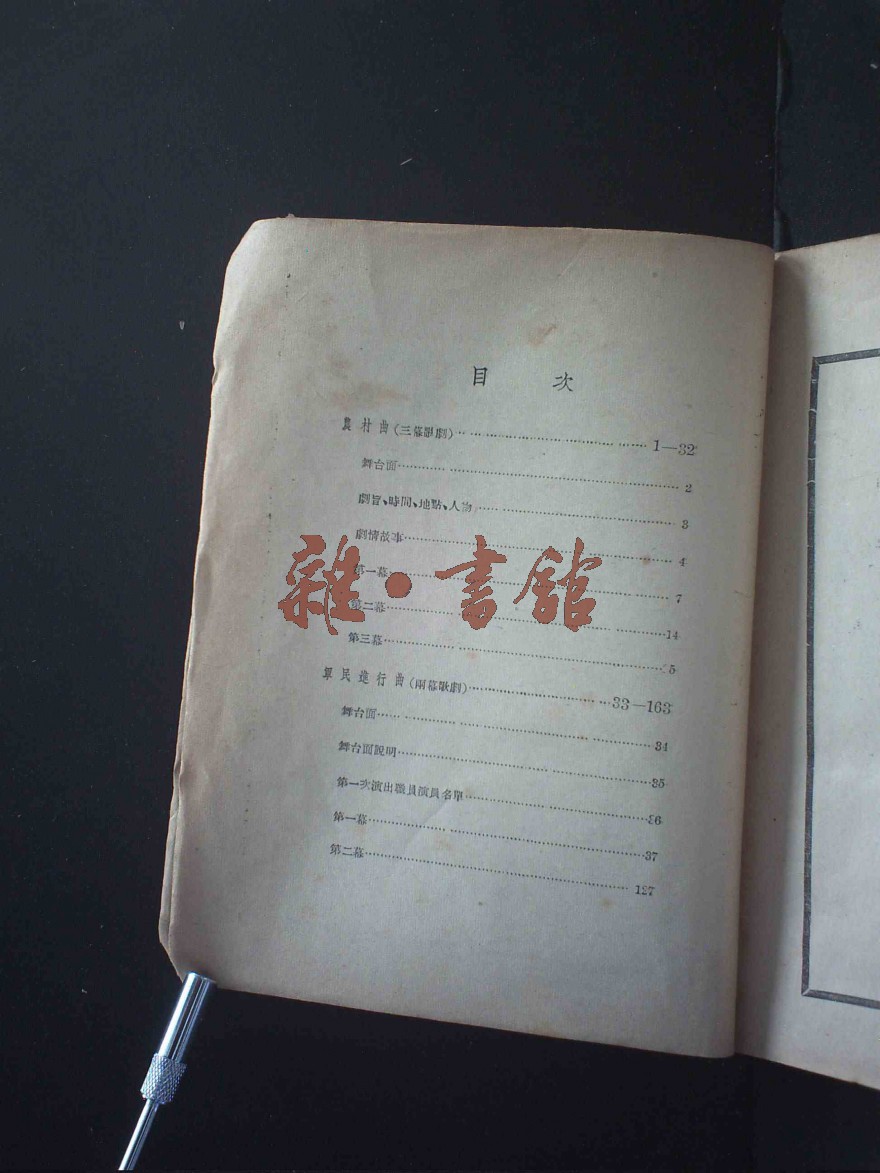 目 次
農村曲(三幕歌劇)……1—32
舞台面……2
劇旨、時間、地點、人物……3
劇情故事……4
第一幕……7
第二幕……14
第三幕……5
軍民進行曲(兩幕歌劇)……33—163
舞台面……34
舞台面說明……35
第一次演出職員演員名單……36
第一幕……37
第二幕……127
雜·書館